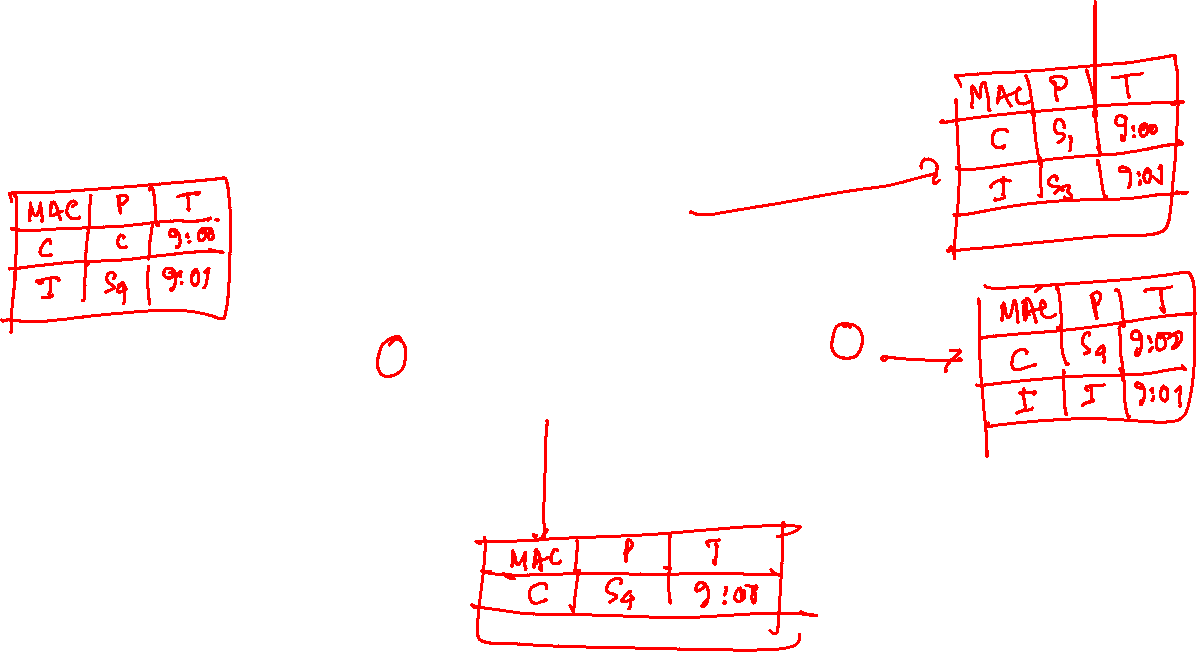 MAC P T
C S1 9:00
I S3 9:01
MAC P T
C C 9:00
I S4 9:01
MAC P T
C S4 9:00
I I 9:01
O O
MAC P T
C S4 9:00